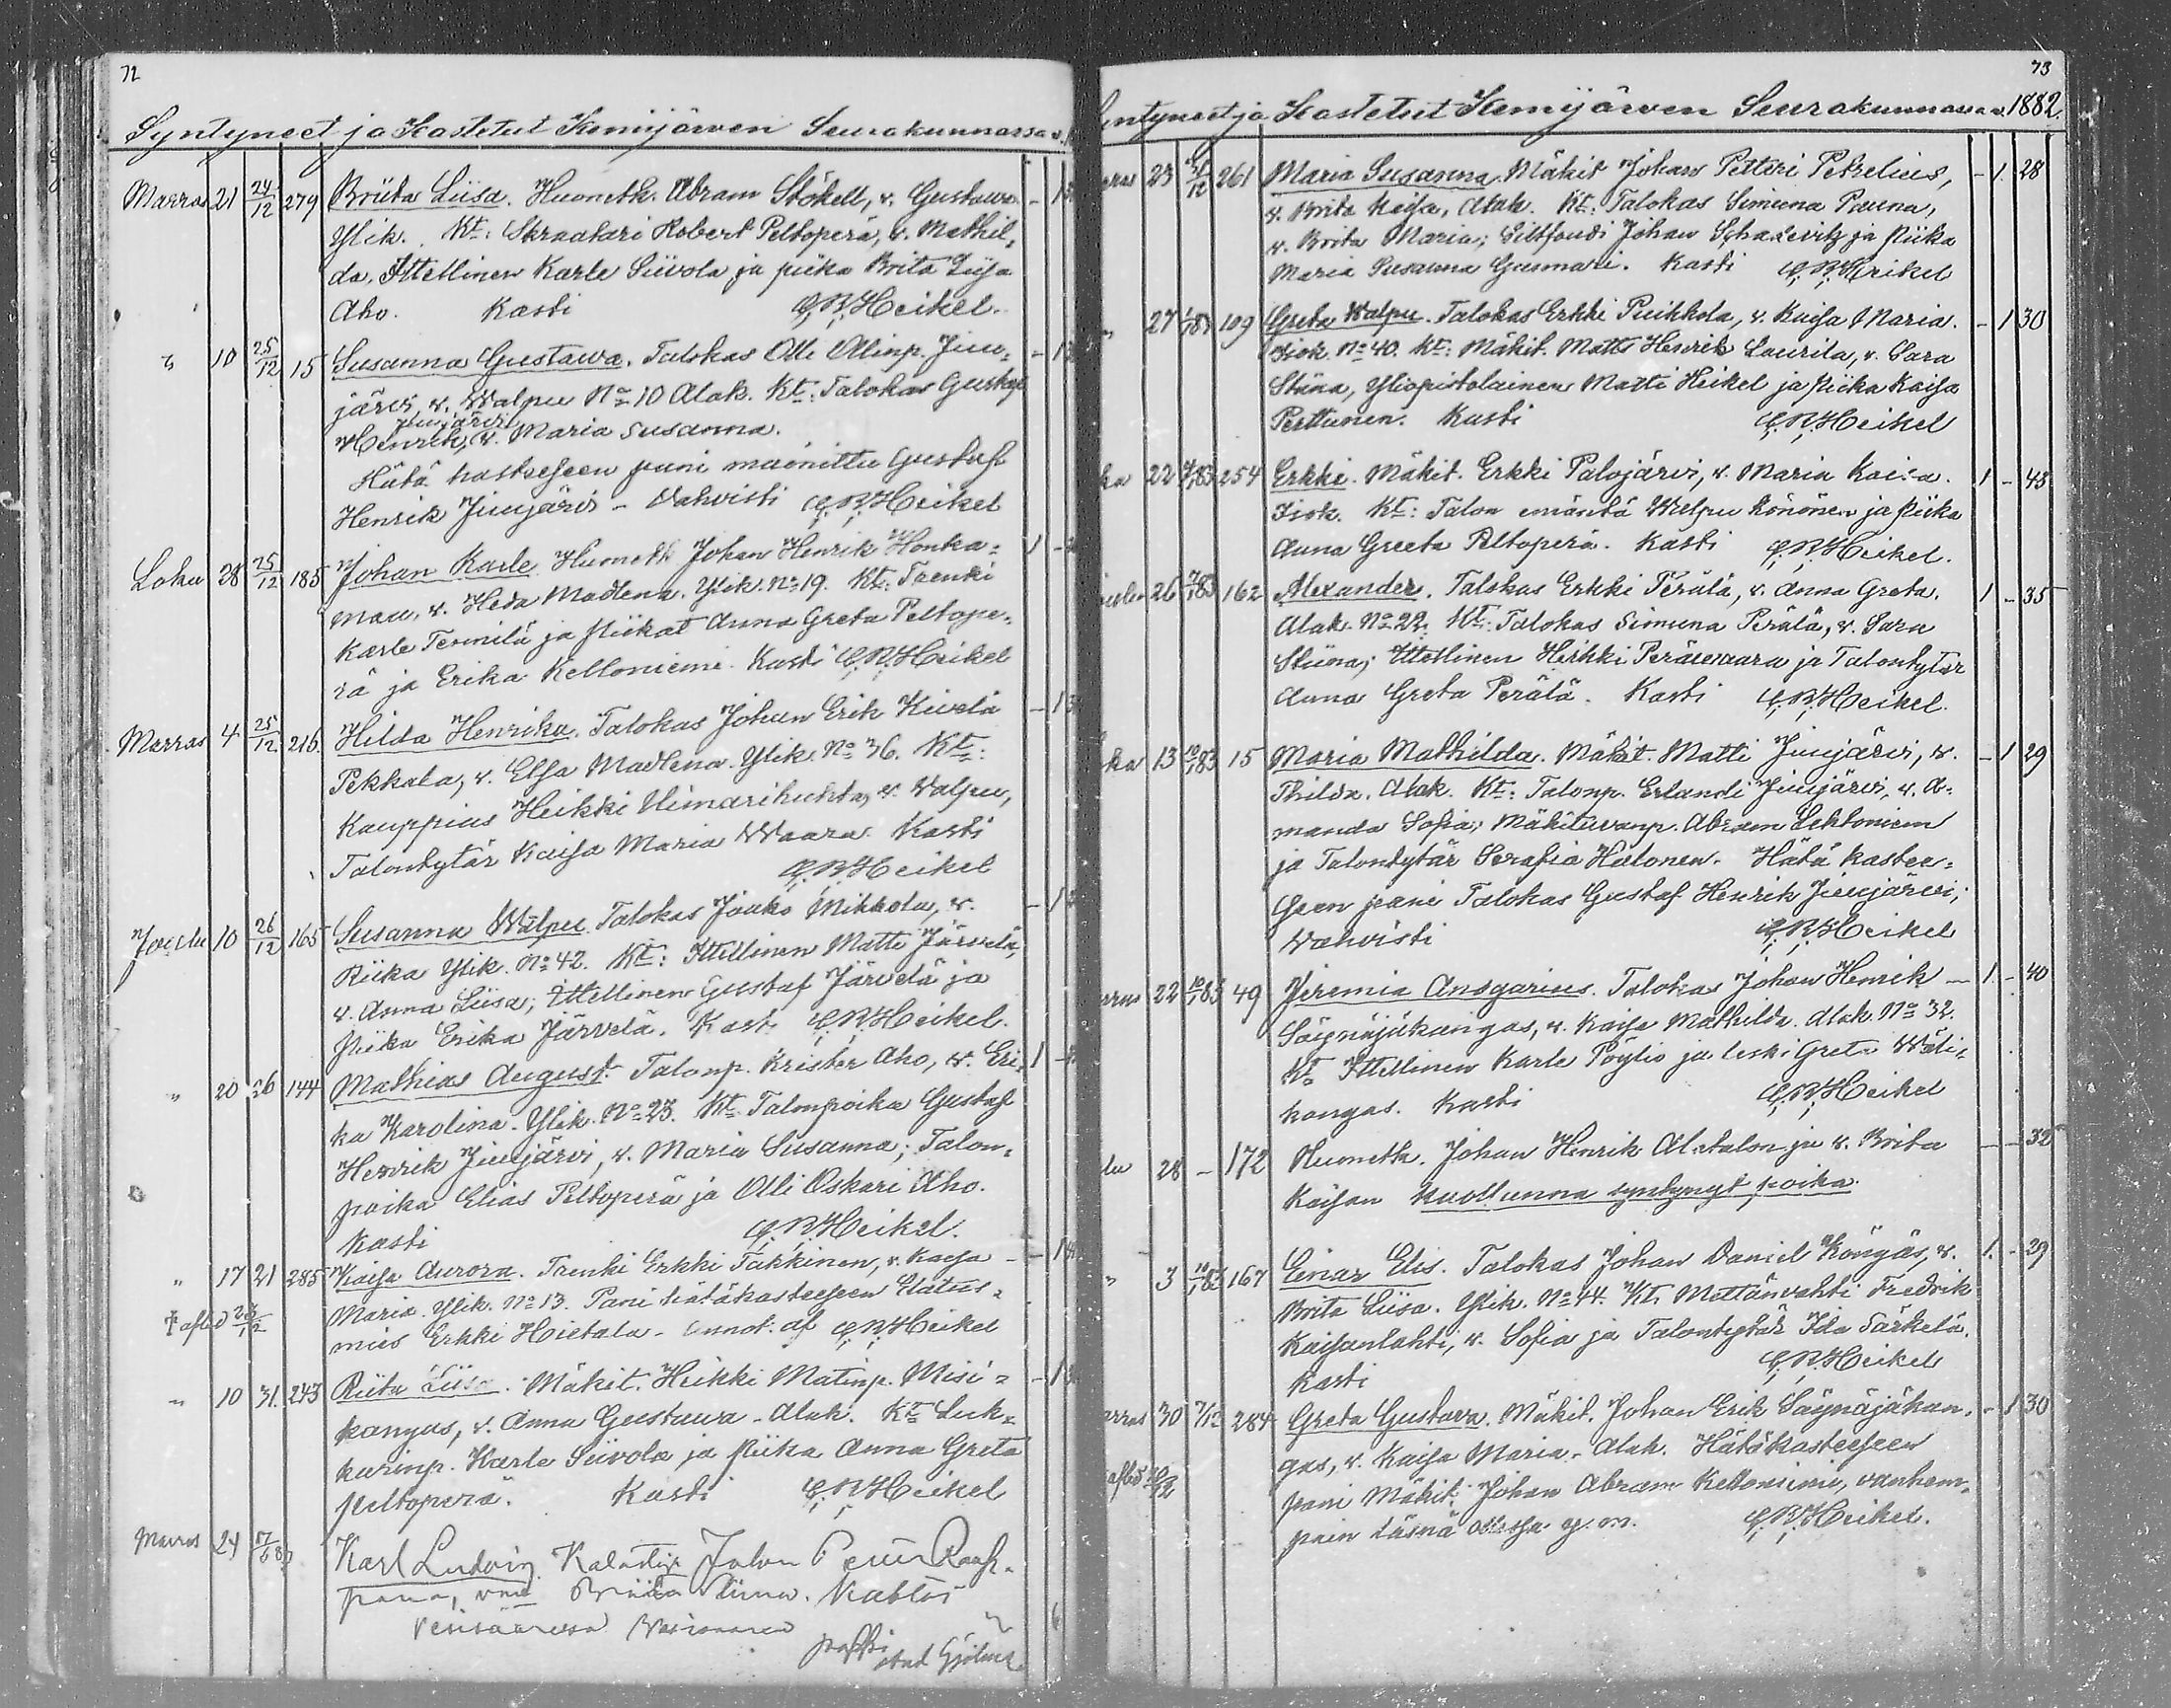 72
Syntyneet ja Kastetut Kemijärven Seurakunnassa v.
Marras 21 24/12 279 Briita Liisa. Huonetk. Abram Stökell, v. Gustawa - 1
Ylik. Kt: Skraatari Robert Peltoperä, v. Mathil-
da, Ittellinen Karle Siivola ja piika Brita Liisa
Aho. Kasti C. R. Heikel.
" 10 25/12 15 Susanna Gustawa. Talokas Olli Ollinp. Juu- - 1
järvi, v. Walpu No 10 Alak. Kt: Talokas Gustaf
Juujärvi
Henrik, v. Maria Susanna.
Hätä kasteeseen pani mainittu Gustaf
Henrik Juujärvi - Vahvisti C. R. Heikel
Loka 28 25/12 185 Johan Karle Huonetk Johan Henrik Honka- 1 -
maa, v. Heda Madlena. Ylik. No 19. Kt: Trenki
Karle Tennilä ja piikat Anna Greta Peltope-
rä ja Erika Kelloniemi. Kasti C. R. Heikel
Marras 4 25/12 216. Hilda Henrika. Talokas Johan Erik Kivelä - 1
Pekkala, v. Elsa Madlena. Ylik. No 36. Kt:
Kauppias Heikki Uimarihuhta, v. Walpu,
Talontytär Kaisa Maria Waara. Kasti
C. R. Heikel
Joulu 10 26/12 165 Susanna Walpu. Talokas Jouko Mikkola, v. - 1
Riika Ylik. No 42. Kt: Ittellinen Matti Järvelä,
v. Anna Liisa; Ittellinen Gustaf Järvelä ja
Piika Erika Järvelä. Kasti C. R. Heikel.
" 20 26 144 Mathias August. Talonp. Krister Aho, v. Eri- 1 -
ka Karolina. Ylik. No 23. Kt: Talonpoika Gustaf
Henrik Juujärvi, v. Maria Susanna; Talon-
poika Elias Peltoperä ja Olli Oskari Aho.
Kasti C. R. Heikel.
" 17 21 285 Kaisa Aurora. Trenki Erkki Takkinen, v. Kaisa - 1
† afled 23/12 Maria. Ylik. No 13. Pani hätäkasteeseen Elätus-
mies Erkki Hietala - Annot. af C. R. Heikel
" 10 31. 243 Riita Liisa. Mäkit. Heikki Matinp. Misi- - 1
kangas, v. Anna Gustawa - Alak. Kt: Luk-
karinp. Karle Siivola ja Piika Anna Greta
Peltoperä. Kasti C. R. Heikel
Marras 24 Karl Ludvig. Johan
Briita Kastoi

73
Syntyneet ja Kastetut Kemijärven Seurakunnassa v. 1882.
23 261 Maria Susanna. Mäkit Johan Petteri Petrelius, - 1. 28
v. Brita Kaisa, Alak. Kt: Talokas Simuna Pauna,
v. Brita Maria; Siltfouti Johan ja Piika
Maria Susanna Gunnari. Kasti C. R. Heikel
" 27 1/1 83 109 Greta Walpu. Talokas Erkki Puikkola, v. Kaisa Maria. - 1 30
Isok. No 40. Kt: Mäkit. Matts Henrik Laurila, v. Sara
Stina, Yliopistolainen Matti Heikel ja Piika Kaisa
Perttunen. Kasti C. R. Heikel
22 254 Erkki. Mäkit. Erkki Palojärvi, v. Maria Kaisa. 1 - 43
Isok. Kt: Talon emäntä Walpu Könönen ja Piika
Anna Greeta Peltoperä. Kasti C. R. Heikel.
26 162 Alexander. Talokas Erkki Perälä, v. Anna Greta. 1 - 35
Alak. No 22. Kt: Talokas Simuna Perälä, v. Sara
Stiina; Ittellinen Heikki Perävaara ja Talontytär
Anna Greta Perälä. Kasti C. R. Heikel.
13 10/1 83 15 Maria Mathilda. Mäkit. Matti Juujärvi, v. - 1 29
Thilda. Alak. Kt: Talonp. Erlandi Juujärvi, v. A-
manda Sofia; Mäkituvanp. Abram Lehtoniemi
ja Talontytär Serafia Halonen. Hätä kastee-
seen pani Talokas Gustaf Henrik Juujärvi;
Wahvisti C. R. Heikel
22 10/1 83 49 Jeremia Ansgarius. Talokas Johan Henrik - 1 - 40
Säynäjäkangas, v. Kaisa Mathilda. Alak. No 32.
Kt. Ittellinen Karle Pöyliö ja leski Greta Wäli-
kangas. Kasti C. R. Heikel
28 - 172 Huonetk. Johan Henrik Alatalon ja v. Brita - - 32
Kaisan kuolluna syntynyt poika.
" 3 10/1 83 167 Einar Elis. Talokas Johan Daniel Köngäs, v. 1. - 29
Brita Liisa. Ylik. No 44. Kt. Mettänvahti Fredrik
Kaisanlahti, v. Sofia ja Talontytär Ida Särkelä.
Kasti C. R. Heikel
30 7/12 284 Greta Gustava. Mäkit. Johan Erik Säynäjäkan- - 1 30
gas, v. Kaisa Maria. Alak. Hätäkasteeseen
pani Mäkit. Johan Abram Kelloniemi, vanhem-
pain läsnä ollessa y. m. C. R. Heikel.